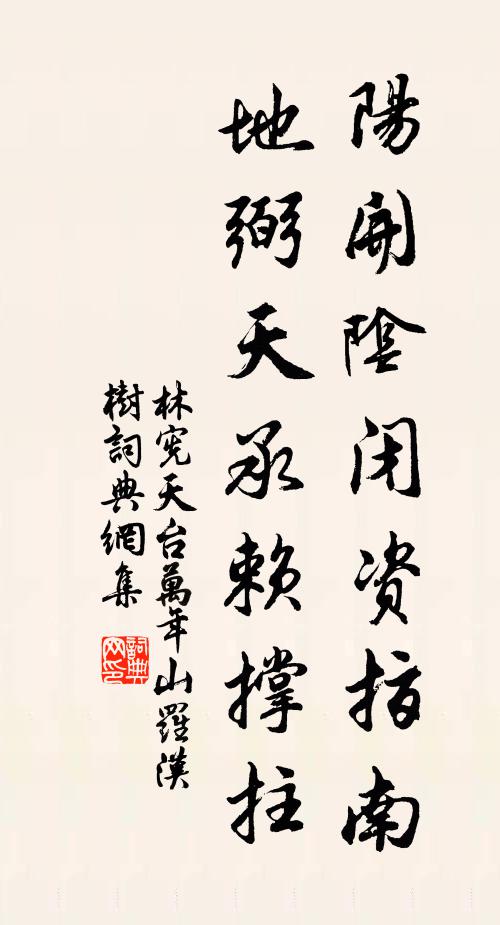 陽開陰闭资指南
地弼天承赖撑拄
林宪天台萬年山羅漢
樹詞典網集
詞典网印